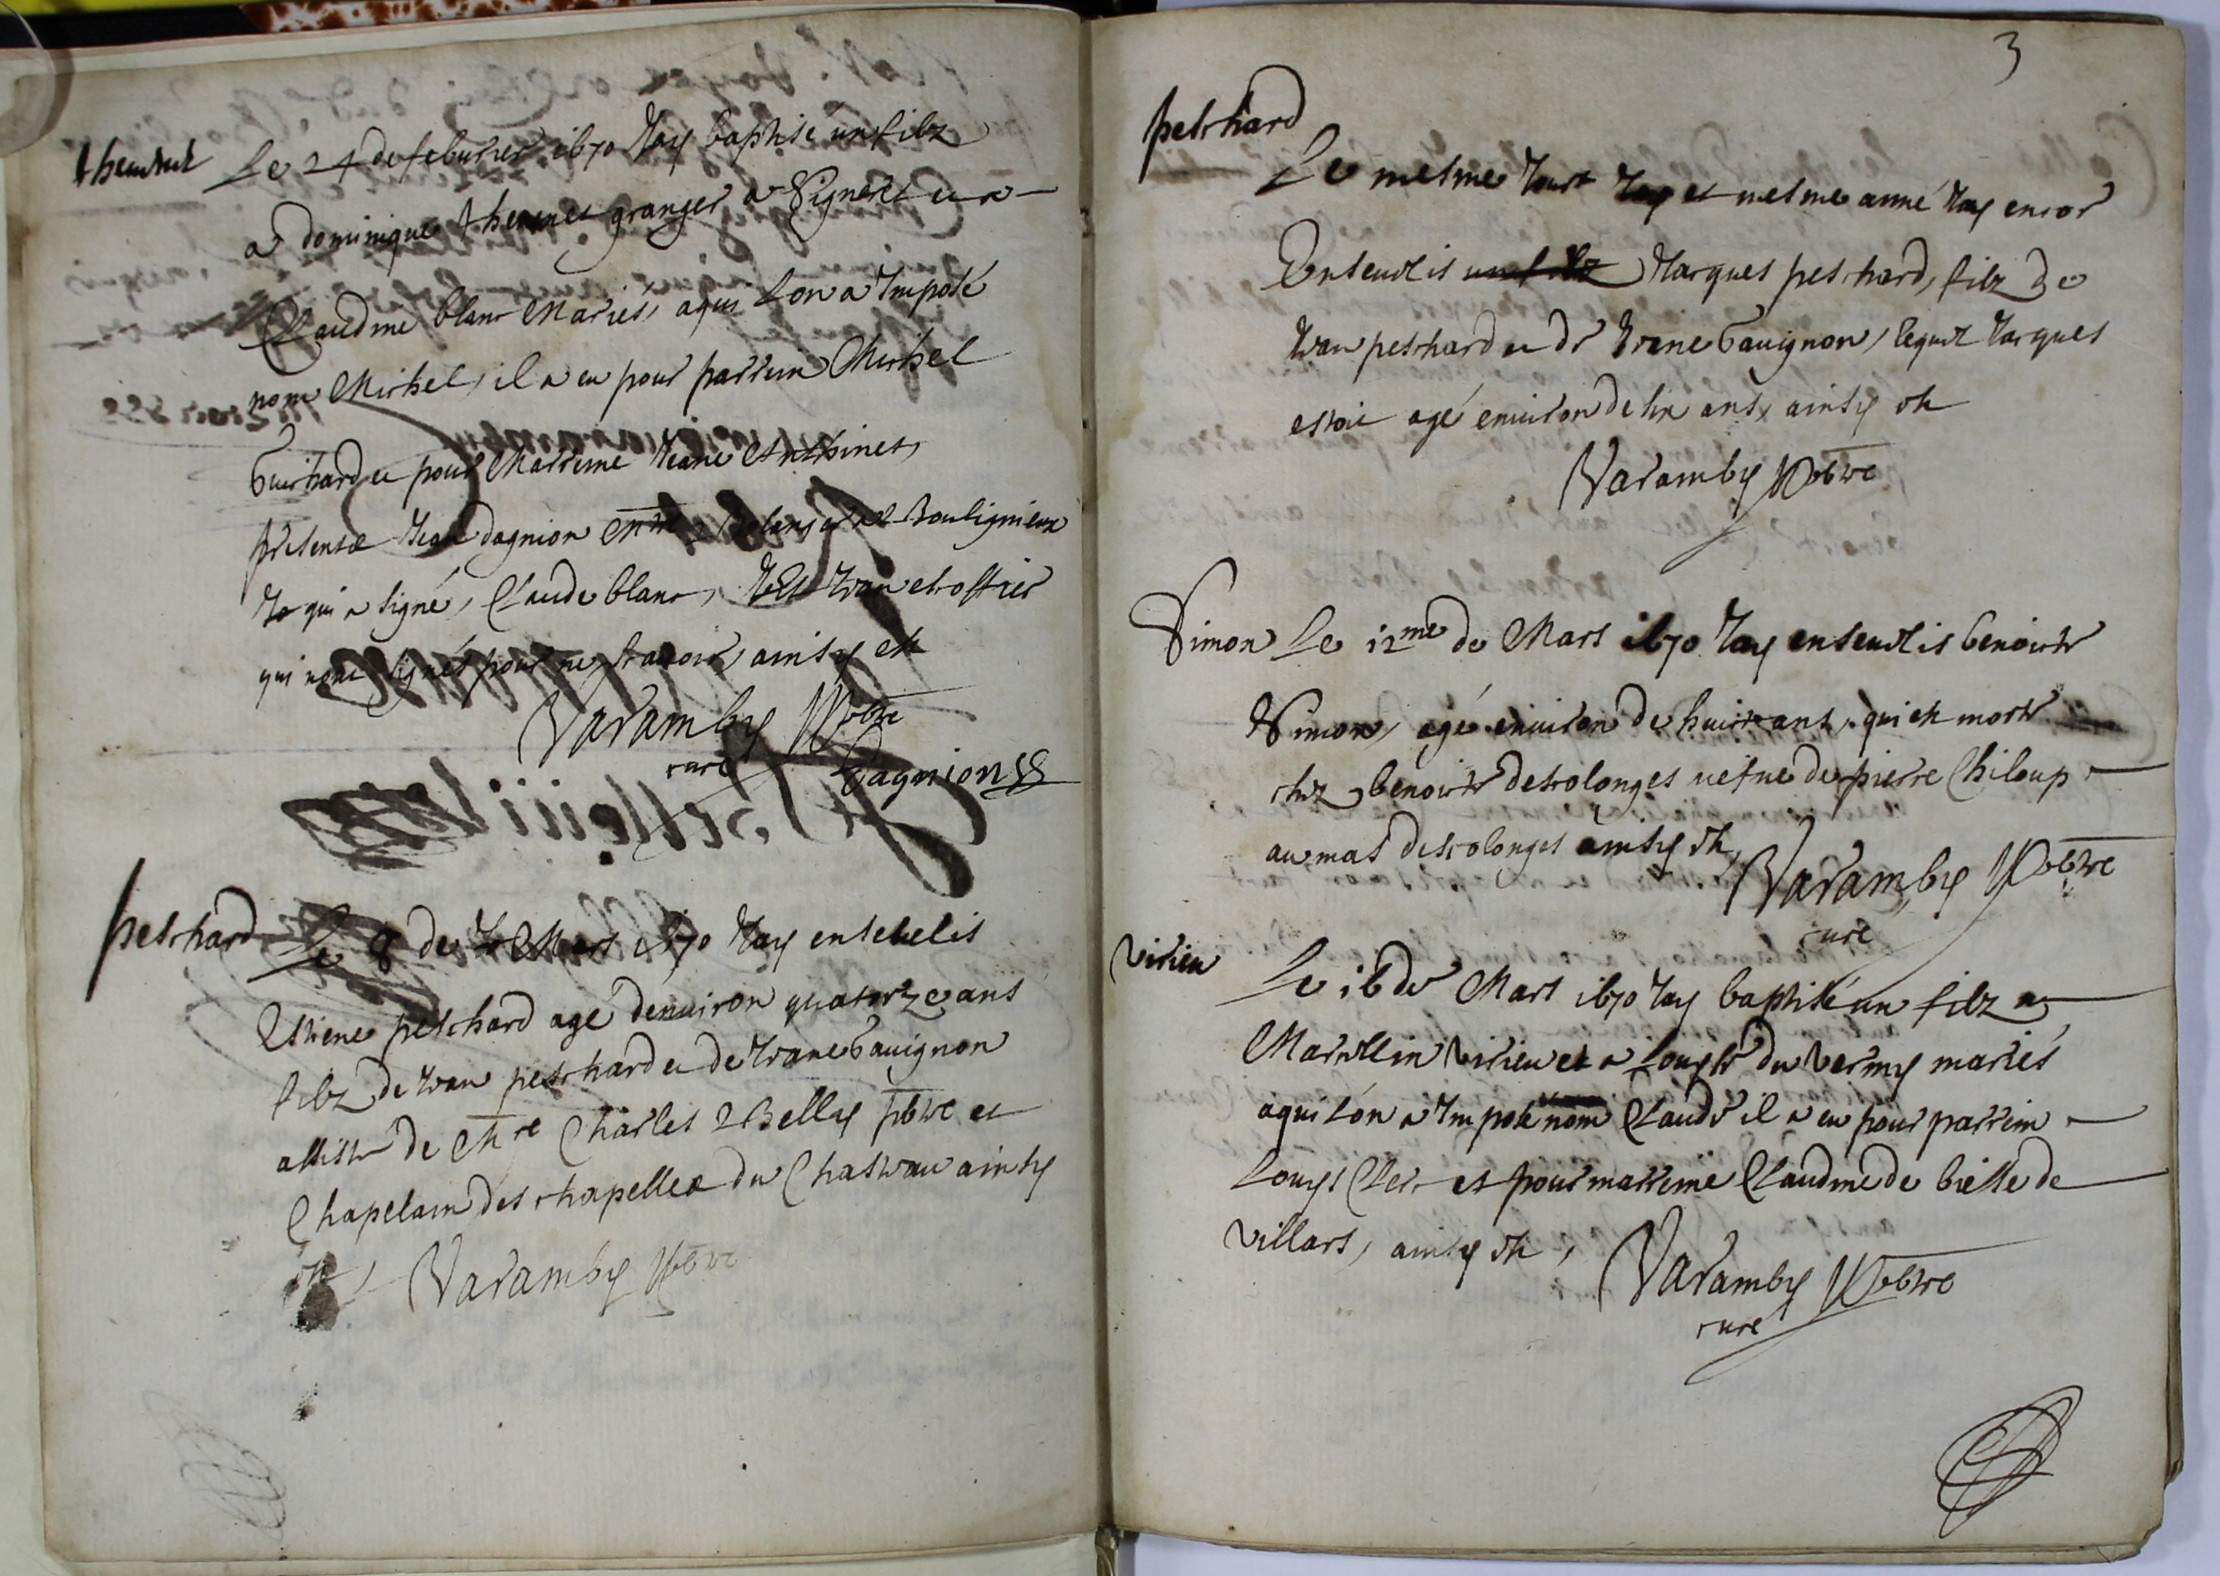 thevenet
Le 24 de feburier 1670 Jay baptisé un filz
a dominique thevenet granger a Vigneres et a
Claudine blanc Mariés, a qui Lon a Imposé
nom Michel, il a eu pour parrein Michel
Guichard et pour Marreine Jeane
présence Jean dagnion de Bouligneux
qui a signé, Claude blanc,
qui nont signés pour ne scavoir, ainsy est
Varamby pbtre
curé
Dagnion
peschard
Le 8 de Mars 1670 Jay ensevelis
Estiene peschard agé denuiron quatorze ans
filz de Jean peschard et de Jeane Gauignon
assisté de Mre Charles Belly pbtre et
Chapelain des chapelles du Chasteau ainsy
est, Varamby pbtre
3
peschard
Le mesme Jour et mesme anné Jay encor
Ensevelis un filz Jacques peschard, filz de
Jean peschard et de Jeane Gauignon, lequel Jacques
estoit agé enuiron de six ans, ainsy est
Varamby pbtre
Simon Le 12me de Mars 1670 Jay ensevelis benoiste
Simon, agé enuiron de huict ans, qui est morte
chez benoiste descolonges uefue de pierre Chiloup
au mas descolonges ainsy est,
Varamby pbtre
curé
Virieu
Le 16 de Mars 1670 Jay baptisé un filz a
Marcellin Virieu et a du vernay mariés
a qui lón a Imposé nom Claude il a eu pour parrein
Louys Clerc et pour marreine Claudine de
Villars, ainsy est,
Varamby pbtre
curé